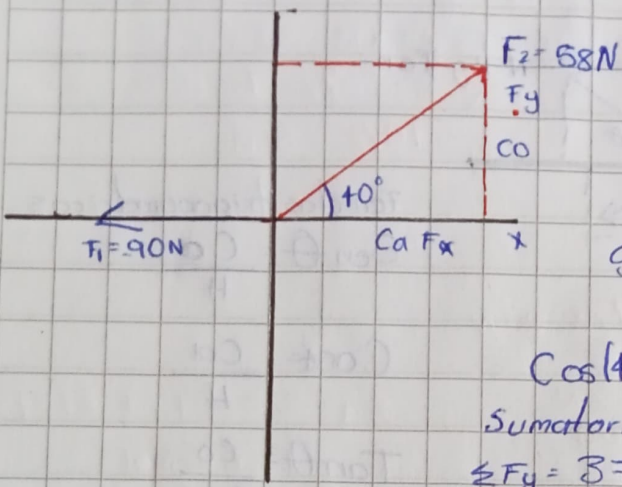 F2= 58N
Fy
CO
40°
F1=90N
Ca Fx
x
Cos(4
Sumator
ΣFy = 3=